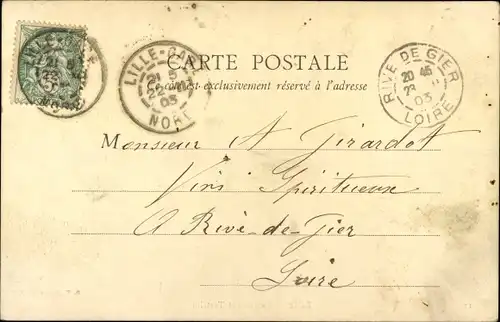 CARTE POSTALE
Ce côté est exclusivement réservé à l'adresse
LILLE-GARE
21 5
22
03
NORD
RIVE DE GIER
20 45
23
03
LOIRE
Monsieur A Girardot
Vins Spiritueux
A Rive-de-Gier
Loire